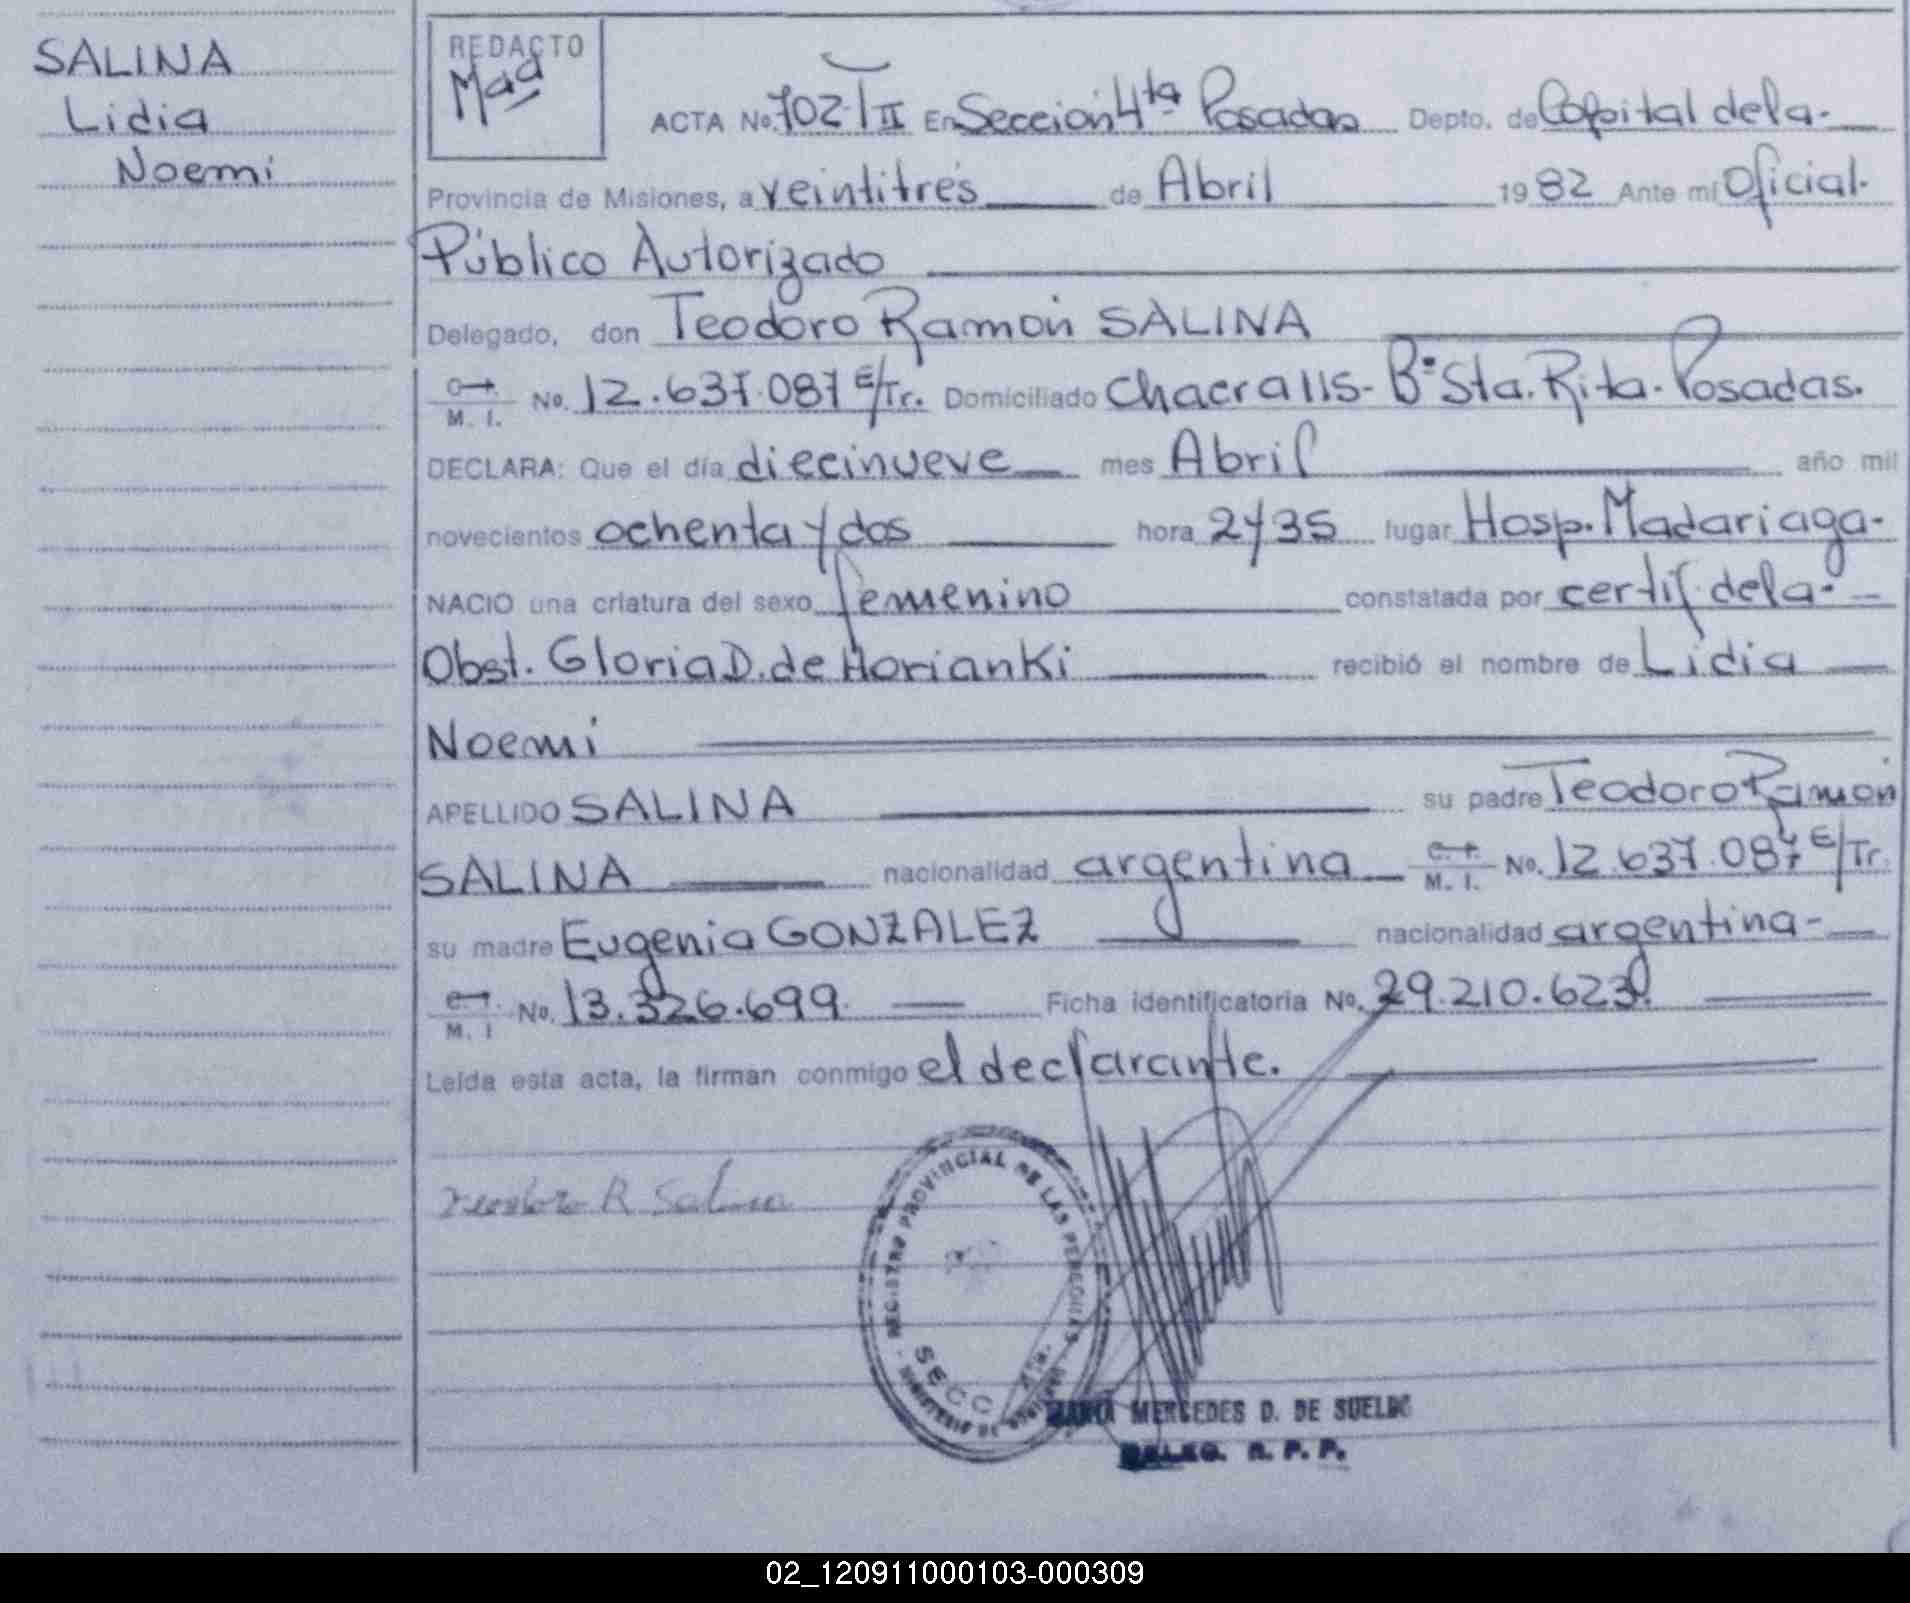 SALINA
Lidia
Noemi
REDACTO
Maq
ACTA No. 702-T II En Sección 4ta Posadas Depto. de Capital de la.
Provincia de Misiones, a veintitrés de Abril 1982 Ante mí Oficial.
Público Autorizado
Delegado, don Teodoro Ramón SALINA
M. I. No. 12.637.087 E/Tr. Domiciliado Chacra 115- Bº Sta. Rita. Posadas.
DECLARA: Que el día diecinueve mes Abril año mil
novecientos ochenta y dos hora 2y35 lugar Hosp. Madariaga-
NACIO una criatura del sexo femenino constatada por certif. de la-
Obst. Gloria D. de Horianki recibió el nombre de Lidia
Noemi
APELLIDO SALINA su padre Teodoro Ramón
SALINA nacionalidad argentina M. I. No. 12.637.087 E/Tr.
su madre Eugenia GONZALEZ nacionalidad argentina-
M. I No. 13.326.699. Ficha identificatoria No. 29.210.623.
Leída esta acta, la firman conmigo el declarante.
Teodoro R Salina
REGISTRO PROVINCIAL DE LAS PERSONAS
SECC. 4ta.
MINISTERIO DE GOBIERNO
MARIA MERCEDES D. DE SUELDO
DELEG. R. P. P.
02_120911000103-000309